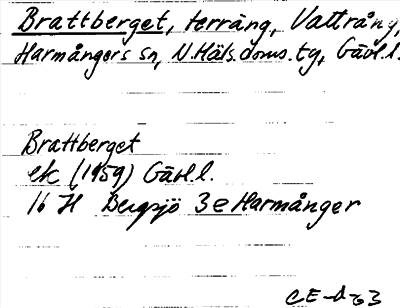 Brattberget, terräng, Vattrång,
Harmångers sn, N.Häls.doms.tg, Gävl.l.
Brattberget
ek (1959) Gävl.l.
16 H Bergsjö 3e Harmånger
CE-D-63